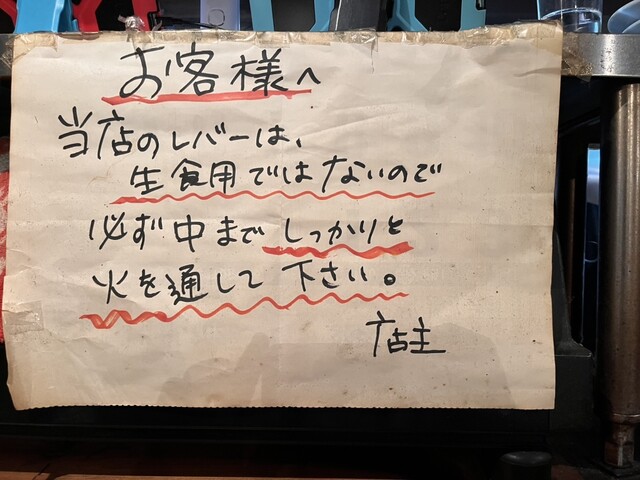 お客様へ
当店のレバーは、
生食用ではないので
必ず中までしっかりと
火を通して下さい。
店主